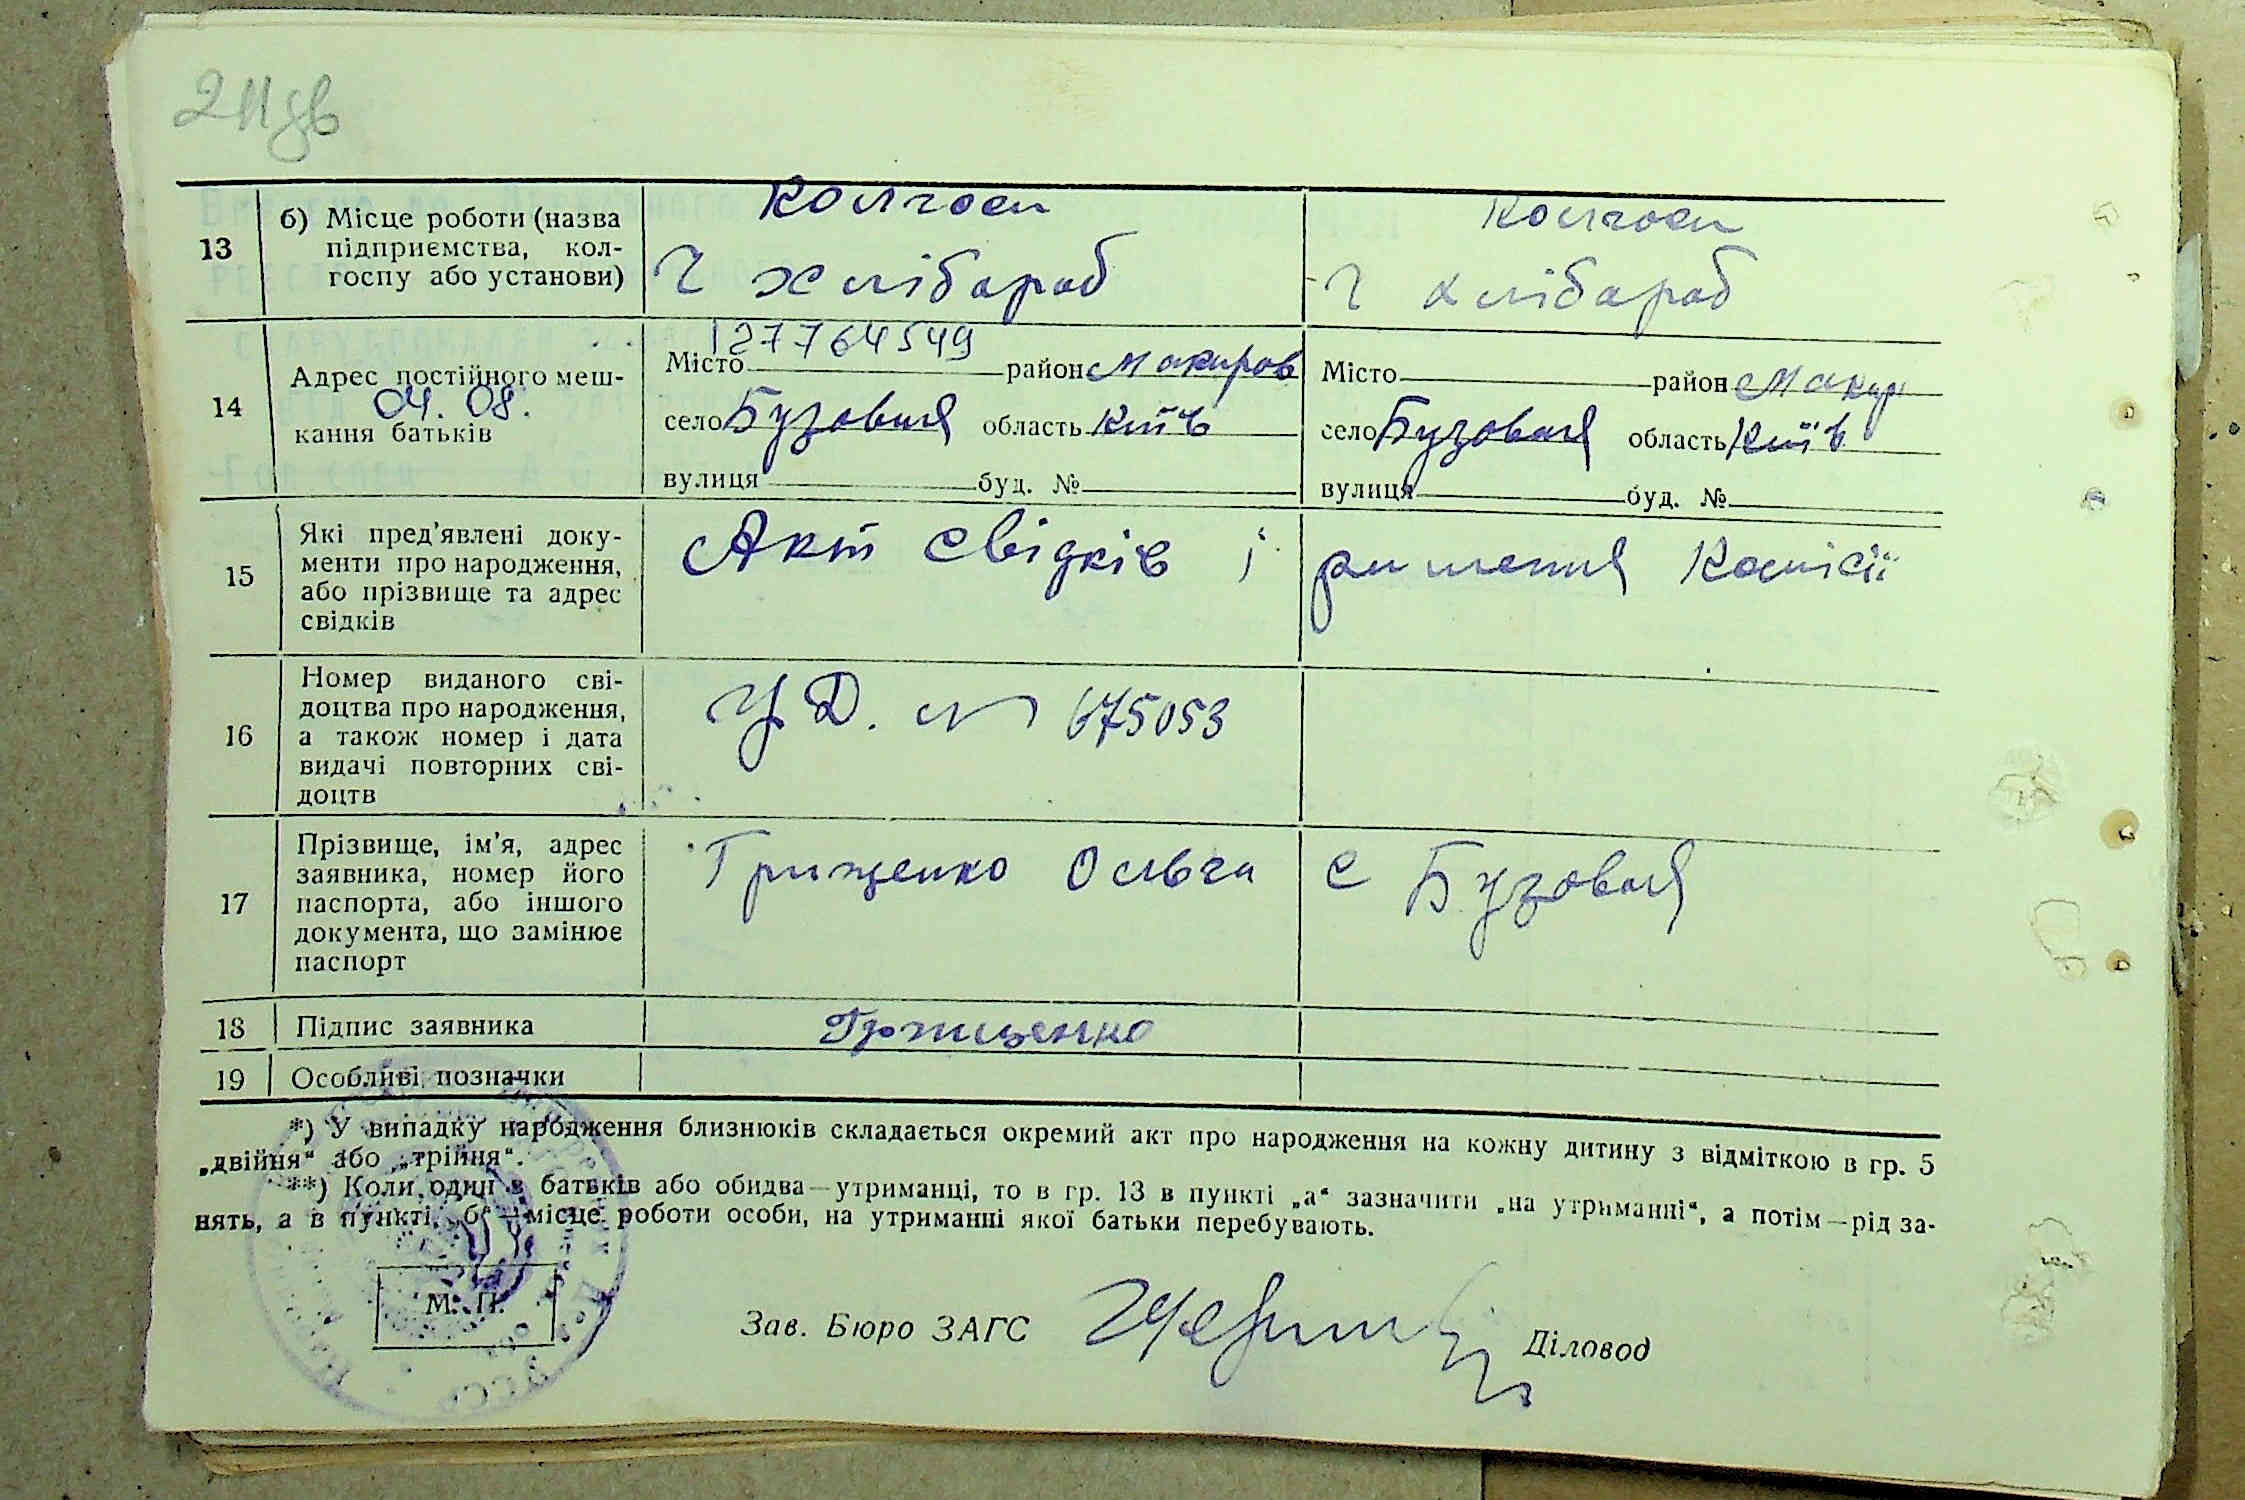 211 зв
13 б) Місце роботи (назва підприємства, кол-госпу або установи)
Колгосп
Ч хлібароб
Колгосп
Ч хлібароб
14 Адрес постійного меш-
04. 08.
кання батьків
1277764549
Місто район Макаров
село Бузовая область Київ
вулиця буд. №
Місто район Макар
село Бузовая область Київ
вулиця буд. №
15 Які пред'явлені доку-
менти про народження,
або прізвище та адрес
свідків
Акт свідків і ришення Комісії
16 Номер виданого сві-
доцтва про народження,
а також номер і дата
видачі повторних сві-
доцтв
УД. № 675053
17 Прізвище, ім'я, адрес
заявника, номер його
паспорта, або іншого
документа, що замінює
паспорт
Грищенко Ольга с Бузовая
18 Підпис заявника Грищенко
19 Особливі позначки
*) У випадку народження близнюків складається окремий акт про народження на кожну дитину з відміткою в гр. 5
„двійня“ або „трійня“.
**) Коли один з батьків або обидва—утриманці, то в гр. 13 в пункті „а“ зазначити „на утриманні“, а потім—рід за-
нять, а в пункті „б“—місце роботи особи, на утриманні якої батьки перебувають.
М. П.
Зав. Бюро ЗАГС Діловод